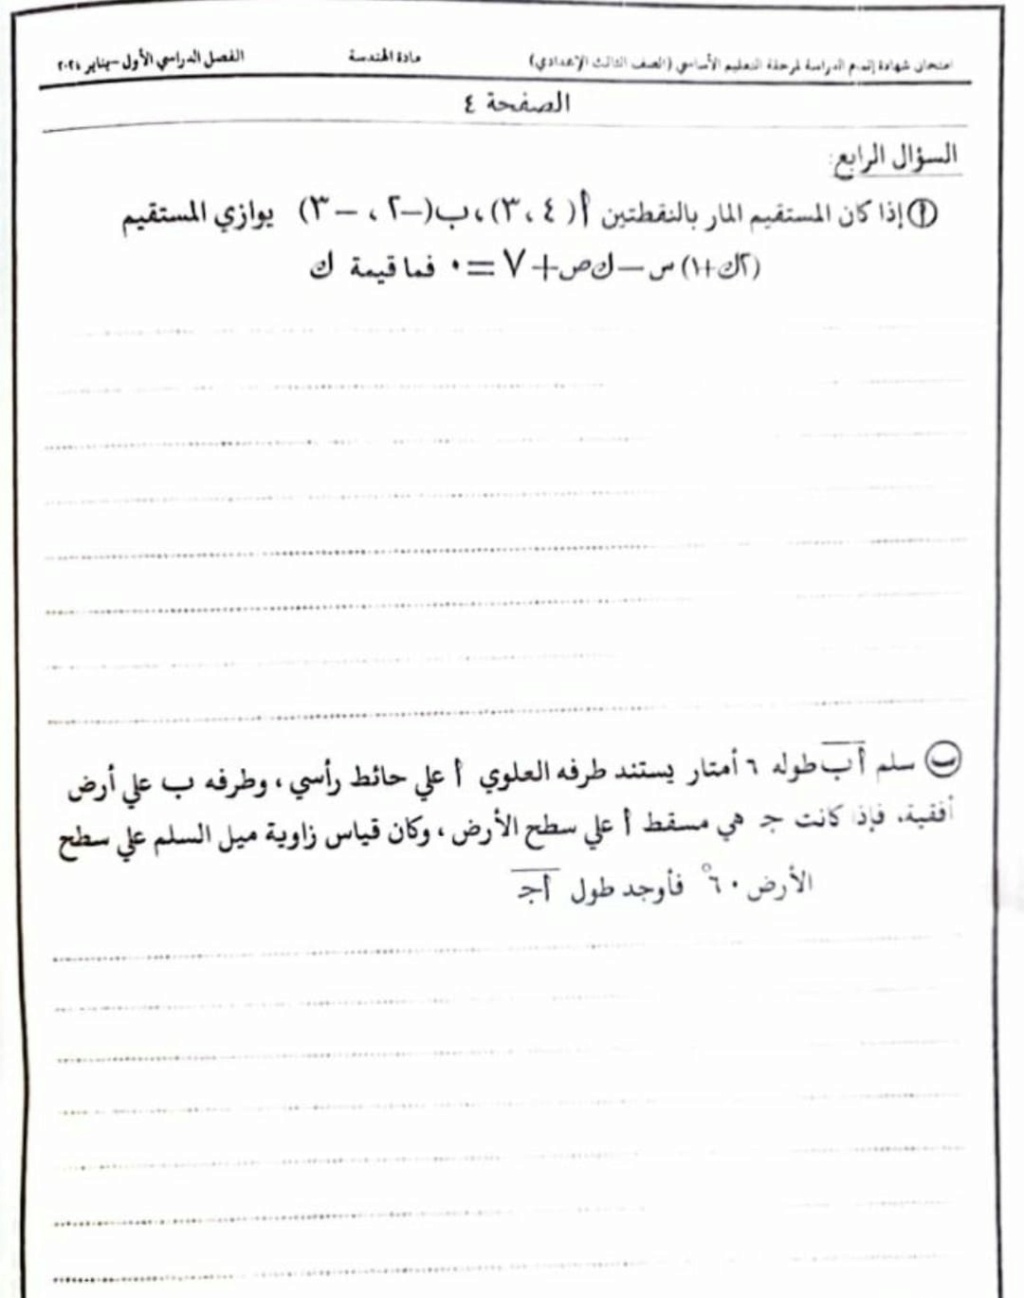 امتحان شهادة إتمام الدراسة لمرحلة التعليم الأساسي (الصف الثالث الإعدادي) مادة الهندسة الفصل الدراسي الأول -يناير ٢٠٢٤
الصفحة ٤
السؤال الرابع:
أ إذا كان المستقيم المار بالنقطتين أ( ٤ ، ٣)، ب(-٢ ، -٣) يوازي المستقيم
(٢ك+١) س – ك ص + ٧ = ٠ فما قيمة ك
ب سلم أب طوله ٦ أمتار يستند طرفه العلوي أ علي حائط رأسي ، وطرفه ب علي أرض
أفقية، فإذا كانت جـ هي مسقط أ علي سطح الأرض ، وكان قياس زاوية ميل السلم علي سطح
الأرض ٦٠° فأوجد طول أجـ